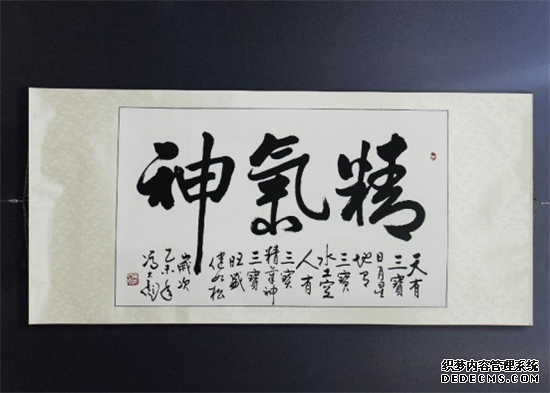 精氣神
天有
三寶
日月星
地有
三寶
水土
人有
三寶
精氣神
三寶
旺盛
健如松
歲次
乙未年
织梦内容管理系统
DEDECMS.COM